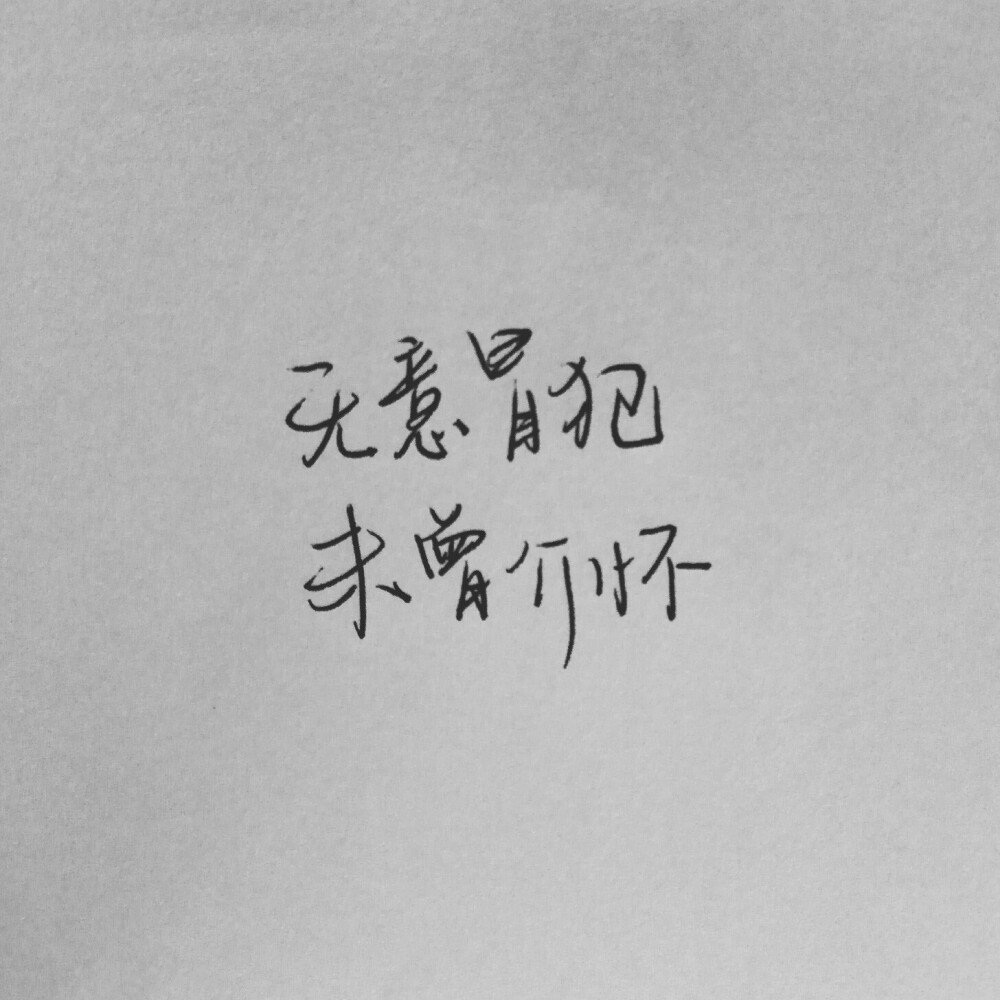 无意冒犯
未曾介怀